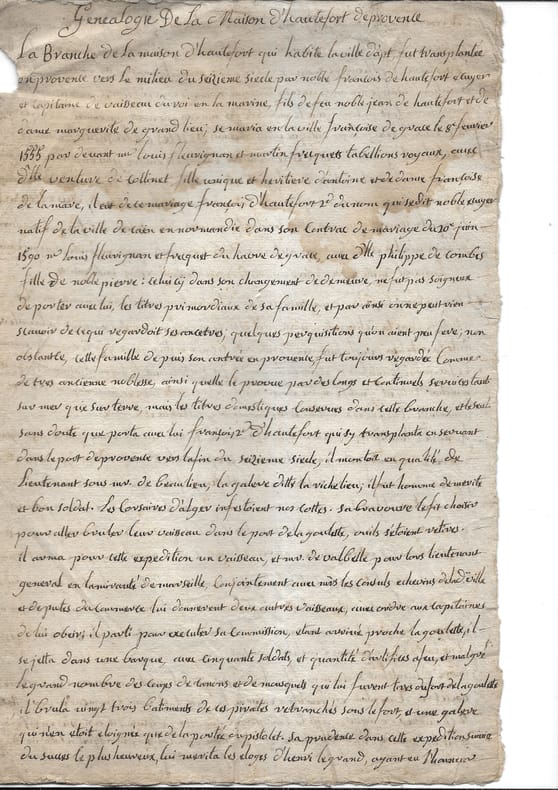 Genealogie De La Maison d'hautefort de provence
La Branche de la maison d'hautefort qui habite la ville d'apt fut transplantée
en provence vers le milieu du seizieme siecle par noble françois de hautefort ecuyer
et capitaine de vaisseau du roi en la marine, fils de feu noble jean de hautefort et de
dame marguerite de grand lieu; se maria en la ville françoise de grace le 8e fevrier
1555 par devant mr louis fleuvignan et martin frequets tabellions royaux, avec
dlle venture de collinet fille unique et heritiere d'antoine et de dame françoise
de la mare, il eut de ce mariage françois d'hautefort 2d du nom qui se dit noble ecuyer
natif de la ville de caën en normandie dans son contrac de mariage du 10e juin
1590 mr louis fleuvignan et frequet du havre de grace, avec dlle philippe de combes
fille de noble pierre: celui cy dans son changement de demeure, ne fut pas soigneux
de porter avec lui, les titres primordiaux de sa famille, et par ainsi on ne peut rien
scavoir de ce qui regardoit ses ancetres, quelques perquisitions qu'on aient peu fere, non
obstante, cette famille depuis son entrée en provence fut toujours regardée comme
de tres ancienne noblesse, ainsi quelle le prouve par des longs et continuels services tant
sur mer que sur terre, mais les titres domestiques conservés dans cette branche, et le seul
sans doute que porta avec lui françois 2d d'hautefort qui sy transplanta en servant
dans le port de provence vers la fin du seizieme siecle, il montoit en qualité de
Lieutenant sous mr. de beaulieu, la galere ditte la richelieu; il fut homme de merite
et bon soldat. Les Corsaires d'alger infestoient nos cottes. sa bravoure le fit choisir
pour aller bruler leur vaisseau dans le port de la goulette, ou ils s'étoient retirés.
il arma pour cette expedition un vaisseau, et mr. de valbelle pour lors lieutenant
general en l'amirauté de marseille, Conjointement avec mrs les Consuls echevins de lad ville
et deputés du Commerce lui donnerent deux autres vaisseaux, avec ordre aux capitaines
de lui obeir; il parti pour executer sa Commission, etant arrivé proche la goulette, il
se jetta dans une barque, avec cinquante soldats, et quantité d'artifices a feu, et malgré
le grand nombre des coups de canons et de mousquets qui lui furent tirés du fort de la goulette
il brula vingt trois batiments de ces pirates retranchés sous le fort, et une galere
qui n'en étoit eloignée que de la portée du pistolet. sa prudence dans cette expedition suivie
du succes le plus heureux, lui merita les eloges d'henri le grand, ayant eu l'honneur